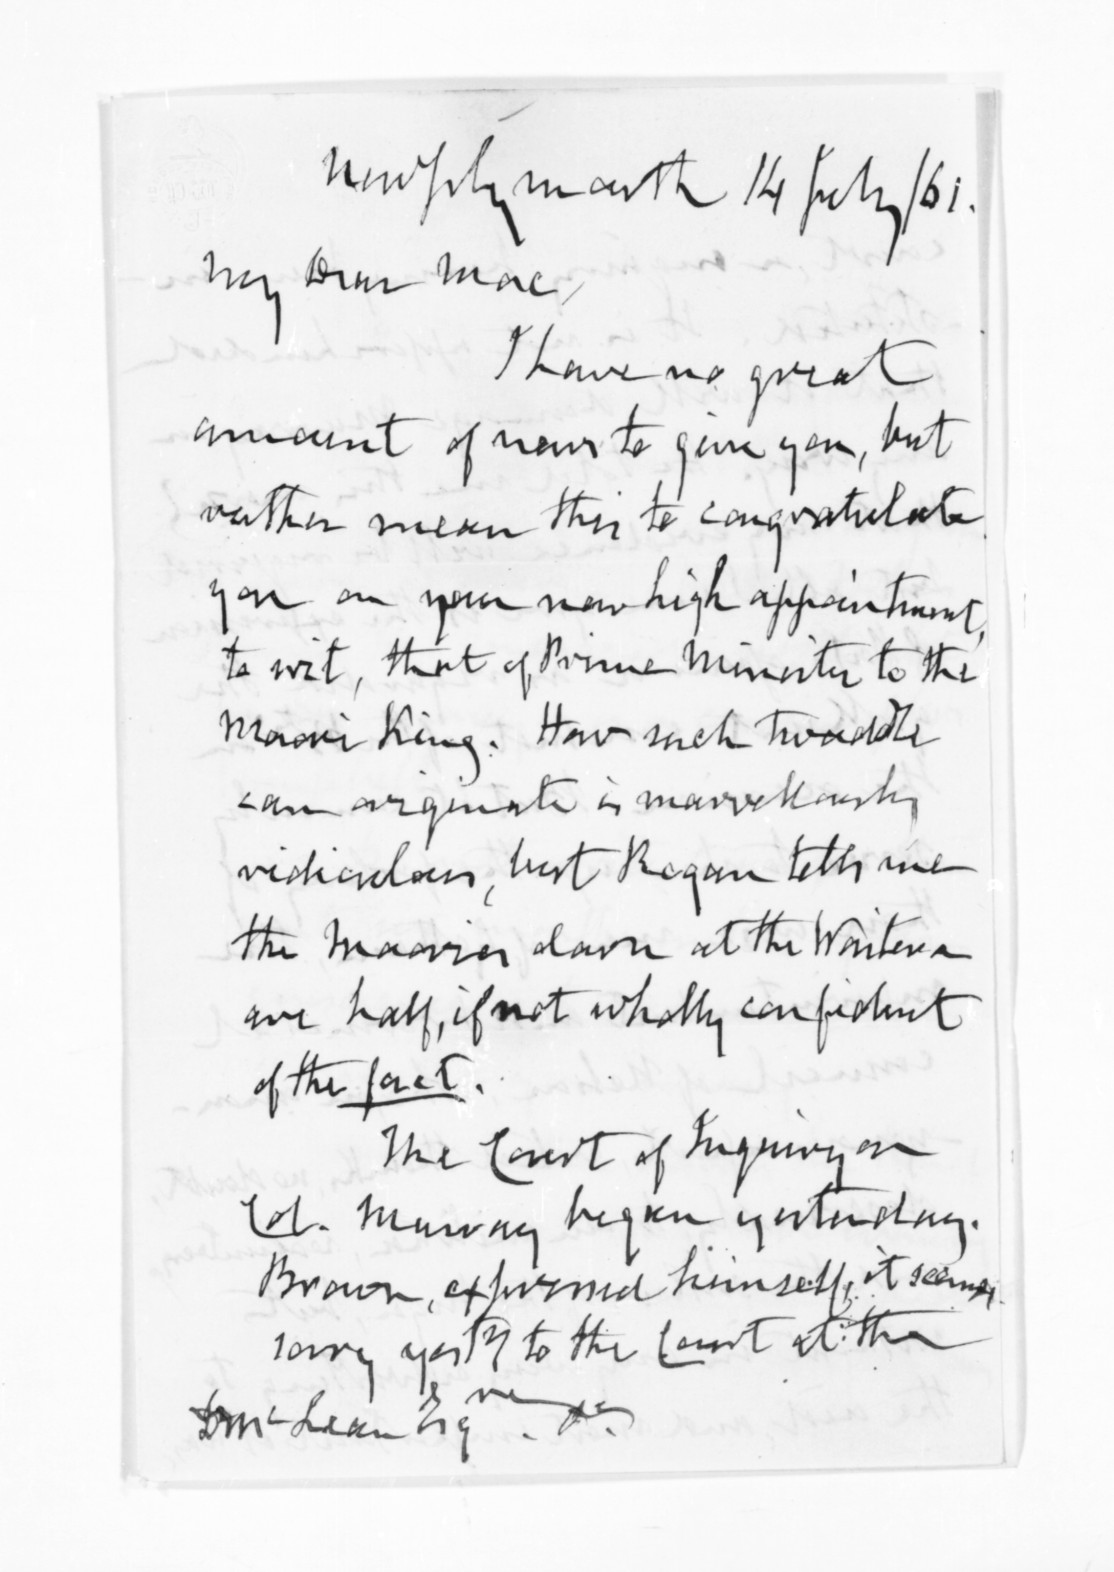 New Plymouth 14 July /61.
My Dear Mac,
I have no great
amount of news to give you, but
rather mean this to congratulate
you on your new high appointment,
to wit, that of Prime Minister to the
Maori King. How such twaddle
can originate is marvellously
ridiculous, but Rogan tells me
the Maories down at the Waitera
are half, if not wholly confident
of the fact.
The Court of Inquiry on
Col. Murray began yesterday.
Brown, expressed himself, it seems,
sorry yesty to the Court at the
D McLean Esqre &c.